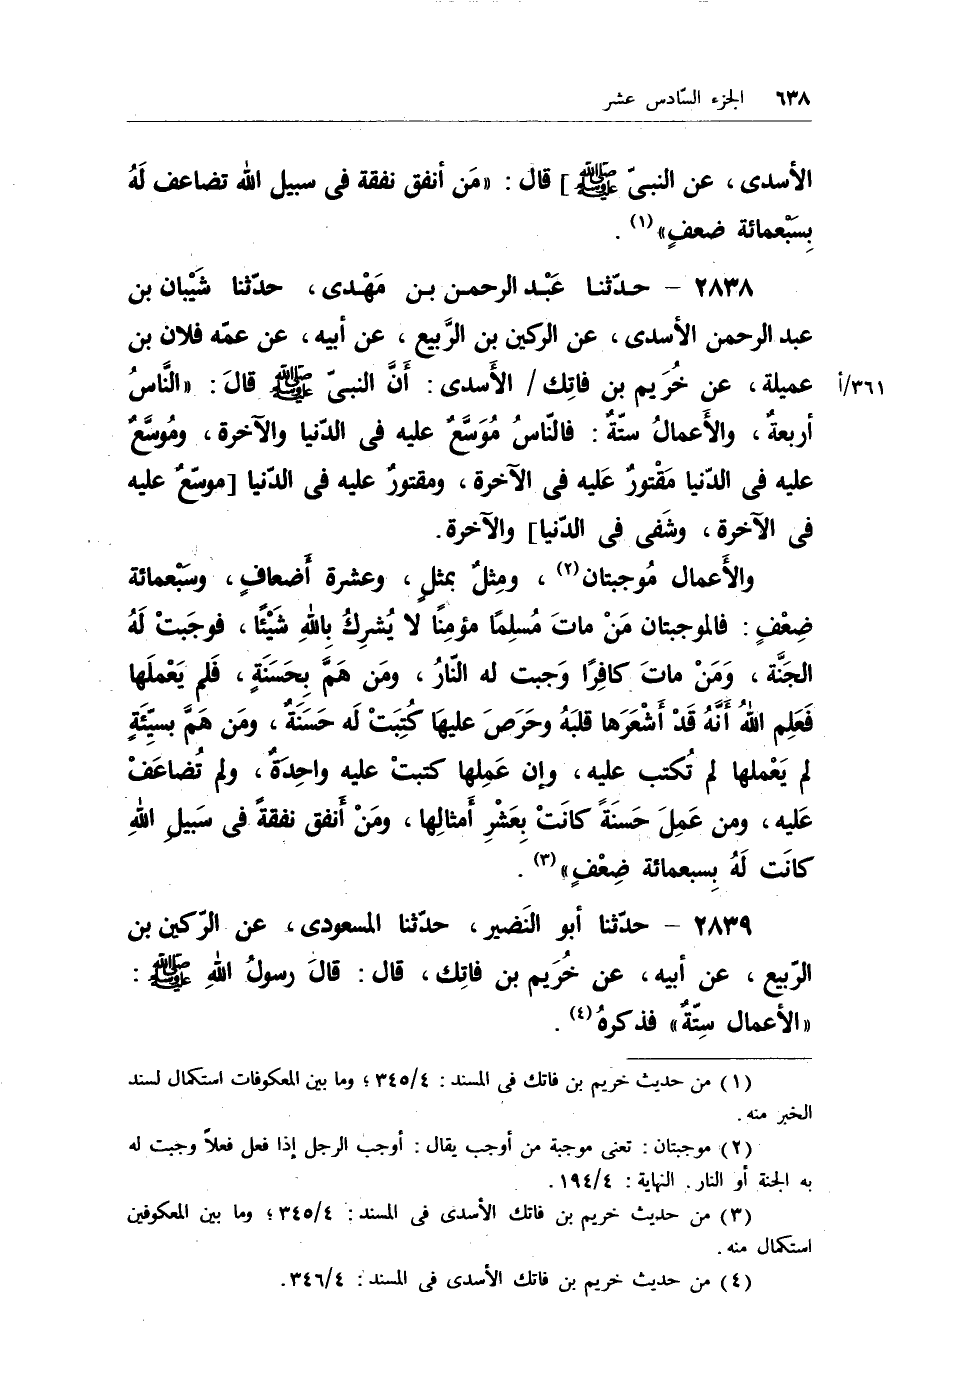 ٦٣٨ الجزء السّادس عشر
الأسدى، عن النبىّ ﷺ] قال: «مَن أنفق نفقة فى سبيل الله تضاعف لَهُ
بِسَبْعمائة ضعفٍ»(١).
٢٨٣٨ – حـدّثنـا عَبْـد الرحمـن بـن مَهْـدى، حدّثنا شَيْبان بن
عبد الرحمن الأسدى، عن الركين بن الرَّبيع، عن أبيه، عن عمّه فلان بن
عميلة، عن خُرَيم بن فاتِك/ الأَسدى: أنَّ النبىّ ﷺ قالَ: «النَّاسُ ٣٦١/أ
أربعةٌ، والأَعمالُ ستّةٌ: فالنّاسُ مُوَسَّعٌ عليه فى الدّنيا والآخرة، ومُوسَّعٌ
عليه فى الدّنيا مَقْتورٌ عَليه فى الآخرة، ومقتورٌ عليه فى الدّنيا [موسّعٌ عليه
فى الآخرة، وشَقى فى الدّنيا] والآخرة.
والأَعمال مُوجبتان(٢)، ومِثلٌ بمثلٍ، وعشرة أَضعافٍ، وسَبْعمائة
ضِعْفٍ: فالموجبتان مَنْ ماتَ مُسلِمًا مؤمِنًا لا يُشرِكُ بِاللهِ شَيْئًا، فوجَبتْ لَهُ
الجَنَّة، وَمَنْ ماتَ كافِرًا وَجبت له النّارُ، ومَن هَمَّ بِحَسَنَةٍ، فَلم يَعْملَها
فَعَلِم اللهُ أَنَّهُ قَدْ أَشْعَرَها قلبَهُ وحَرَصَ عليهَا كُتِبَتْ لَه حَسَنَةٌ، ومَن هَمَّ بسيِّئَةٍ
لم يَعْملها لم تُكتب عليه، وإن عَمِلها كتبتْ عليه واحِدَةٌ، ولم تُضاعَفْ
عَليه، ومن عَمِلَ حَسَنَةً كانَتْ بِعَشْرِ أَمثالِها، ومَنْ أَنفق نفقةً فى سَبيلِ اللهِ
كانَت لَهُ بِسبعمائة ضِعْفٍ»(٣).
٢٨٣٩ – حدّثنا أبو النَضير، حدّثنا المسعودى، عن الرّكين بن
الرّبيع، عن أبيه، عن خُرَيم بن فاتِك، قال: قالَ رسولُ اللهِ ﷺ:
«الأعمال سِتّةٌ» فذكرهُ(٤).
(١) من حديث خريم بن فاتك فى المسند: ٣٤٥/٤؛ وما بين المعكوفات استكمال لسند
الخبر منه.
(٢) موجبتان: تعنى موجبة من أوجب يقال: أوجب الرجل إذا فعل فعلاً وجبت له
به الجنة أو النار. النهاية: ١٩٤/٤.
(٣) من حديث خريم بن فاتك الأسدى فى المسند: ٣٤٥/٤؛ وما بين المعكوفين
استكمال منه.
(٤) من حديث خريم بن فاتك الأسدى فى المسند: ٣٤٦/٤.